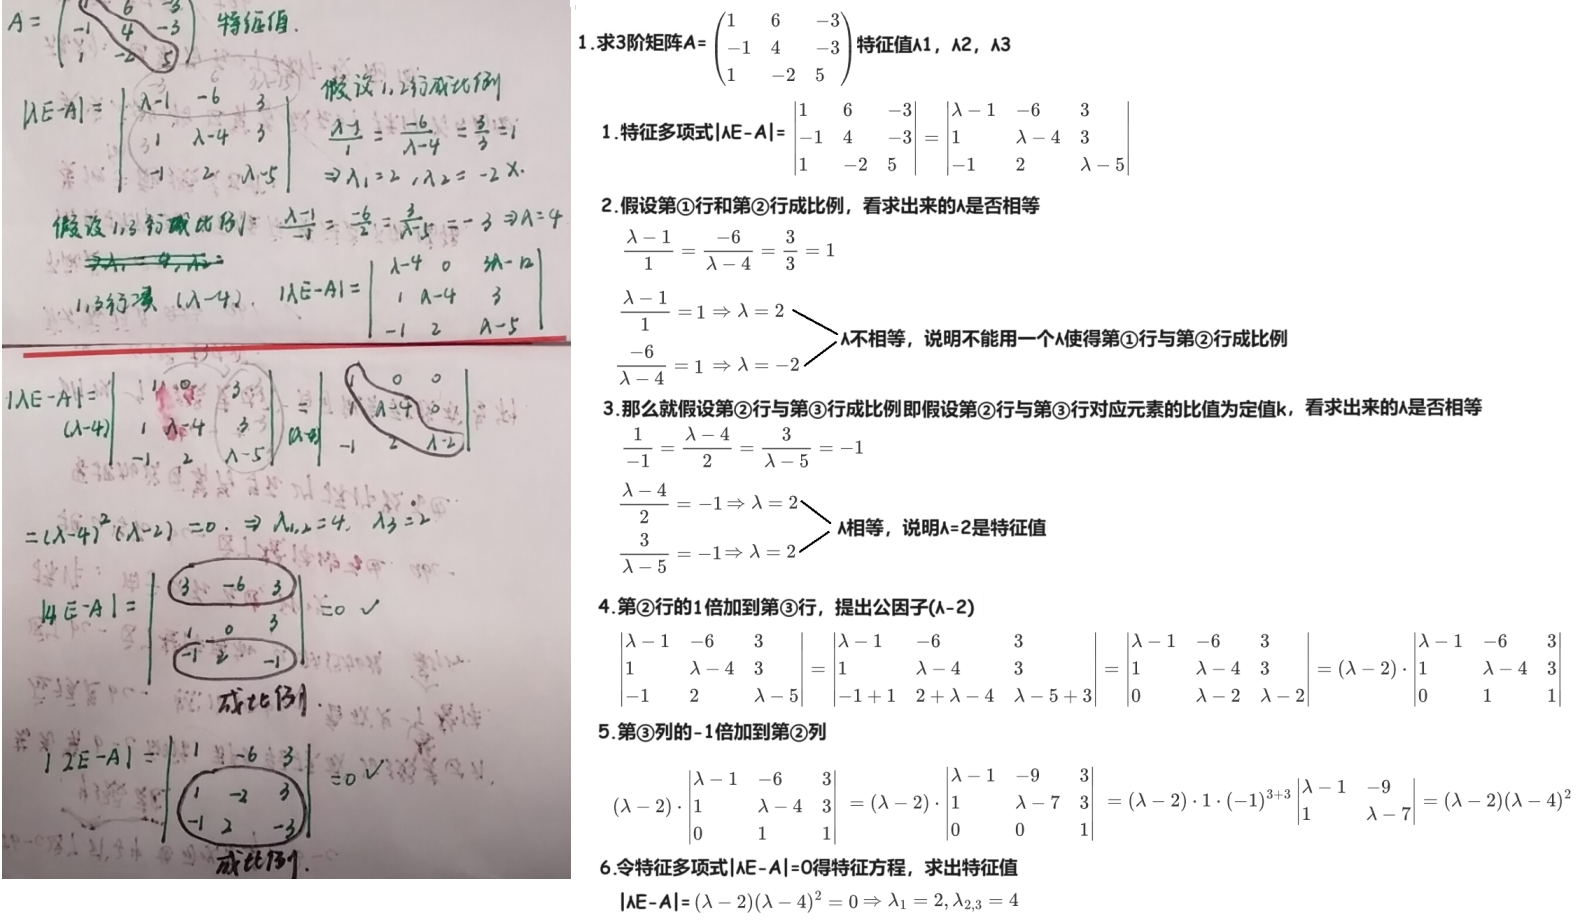 A= ( 6 -3
-1 4 -3
1 -2 5 ) 特征值.
|λE-A|= | λ-1 -6 3
1 λ-4 3
-1 2 λ-5 |
假设1,2行成比例
(λ-1)/1 = (-6)/(λ-4) = 3/3 = 1
⇒λ₁=2, λ₂=-2 ×.
假设1,3行成比例: (λ-1)/(-1) = (-6)/2 = 3/(λ-5) = -3 ⇒λ=4
1,3行 (λ-4). |λE-A|= | λ-4 0 3λ-12
1 λ-4 3
-1 2 λ-5 |
|λE-A|= (λ-4) | 1 0 3
1 λ-4 3
-1 2 λ-5 | = | 1 0 0
1 λ-4 0
-1 2 λ-2 |
=(λ-4)²(λ-2)=0. ⇒ λ₁,₂=4, λ₃=2
|4E-A|= | 3 -6 3
1 0 3
-1 2 -1 | =0 ✓
成比例.
|2E-A|= | 1 -6 3
1 -2 3
-1 2 -3 | =0 ✓
成比例.
1.求3阶矩阵A= (1 6 -3
-1 4 -3
1 -2 5) 特征值λ1，λ2，λ3
1.特征多项式|λE-A|= |1 6 -3
-1 4 -3
1 -2 5| = |λ-1 -6 3
1 λ-4 3
-1 2 λ-5|
2.假设第①行和第②行成比例，看求出来的λ是否相等
(λ-1)/1 = (-6)/(λ-4) = 3/3 = 1
(λ-1)/1 = 1 ⇒ λ = 2
(-6)/(λ-4) = 1 ⇒ λ = -2
λ不相等，说明不能用一个λ使得第①行与第②行成比例
3.那么就假设第②行与第③行成比例即假设第②行与第③行对应元素的比值为定值k，看求出来的λ是否相等
1/(-1) = (λ-4)/2 = 3/(λ-5) = -1
(λ-4)/2 = -1 ⇒ λ = 2
3/(λ-5) = -1 ⇒ λ = 2
λ相等，说明λ=2是特征值
4.第②行的1倍加到第③行，提出公因子(λ-2)
|λ-1 -6 3
1 λ-4 3
-1 2 λ-5| = |λ-1 -6 3
1 λ-4 3
-1+1 2+λ-4 λ-5+3| = |λ-1 -6 3
1 λ-4 3
0 λ-2 λ-2| = (λ-2)· |λ-1 -6 3
1 λ-4 3
0 1 1|
5.第③列的-1倍加到第②列
(λ-2)· |λ-1 -6 3
1 λ-4 3
0 1 1| = (λ-2)· |λ-1 -9 3
1 λ-7 3
0 0 1| = (λ-2)·1·(-1)³⁺³ |λ-1 -9
1 λ-7| = (λ-2)(λ-4)²
6.令特征多项式|λE-A|=0得特征方程，求出特征值
|λE-A|= (λ-2)(λ-4)² = 0 ⇒ λ₁ = 2, λ₂,₃ = 4